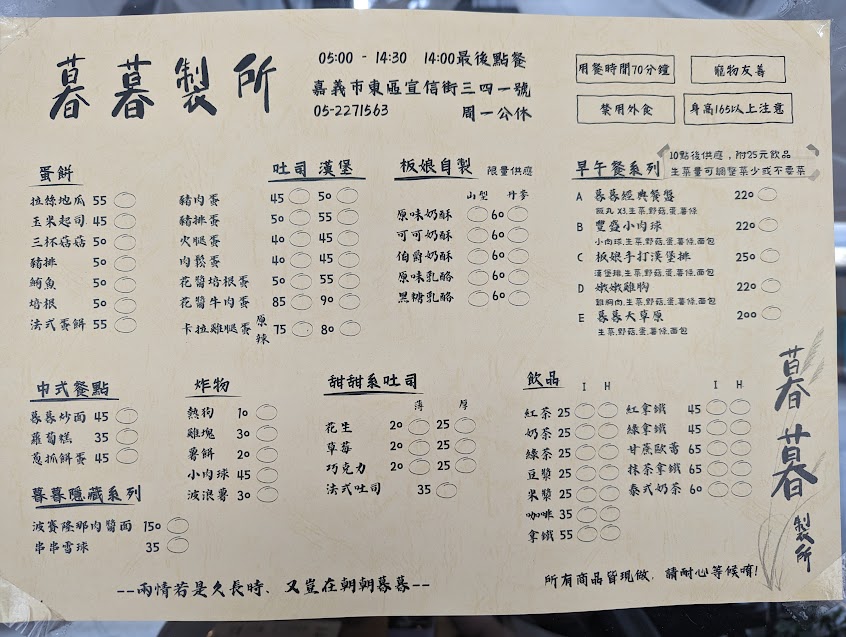 暮暮製所
05:00 - 14:30 14:00最後點餐
嘉義市東區宣信街三四一號
05-2271563 周一公休
用餐時間70分鐘
寵物友善
禁用外食
身高165以上注意
蛋餅
拉絲地瓜 55
玉米起司 45
三杯菇菇 50
豬排 50
鮪魚 50
培根 50
法式蛋餅 55
吐司 漢堡
豬肉蛋 45 50
豬排蛋 50 55
火腿蛋 40 45
肉鬆蛋 40 45
花醬培根蛋 50 55
花醬牛肉蛋 85 90
卡拉雞腿蛋 原 辣 75 80
板娘自製 限量供應
山型 丹麥
原味奶酥 60
可可奶酥 60
伯爵奶酥 60
原味乳酪 60
黑糖乳酪 60
早午餐系列
10點後供應，附25元飲品
生菜量可調整菜少或不要菜
A 暮暮經典餐盤 220
飯丸 X3.生菜.野菇.蛋.薯條
B 豐盛小肉球 220
小肉球.生菜.野菇.蛋.薯條.面包
C 板娘手打漢堡排 250
漢堡排.生菜.野菇.蛋.薯條.面包
D 娥娥雞胸 220
雞胸肉.生菜.野菇.蛋.薯條.面包
E 暮暮大草原 200
生菜.野菇.蛋.薯條.面包
中式餐點
暮暮炒面 45
蘿蔔糕 35
蔥抓餅蛋 45
暮暮隱藏系列
波賽隆那肉醬面 150
串串雪球 35
炸物
熱狗 10
雞塊 30
薯餅 20
小肉球 45
波浪薯 30
甜甜系吐司
薄 厚
花生 20 25
草莓 20 25
巧克力 20 25
法式吐司 35
飲品
I H
紅茶 25
奶茶 25
綠茶 25
豆漿 25
米漿 25
咖啡 35
拿鐵 55
I H
紅拿鐵 45
綠拿鐵 45
甘蔗歐蕾 65
抹茶拿鐵 65
泰式奶茶 60
暮暮製所
--兩情若是久長時、又豈在朝朝暮暮--
所有商品皆現做，請耐心等候唷!